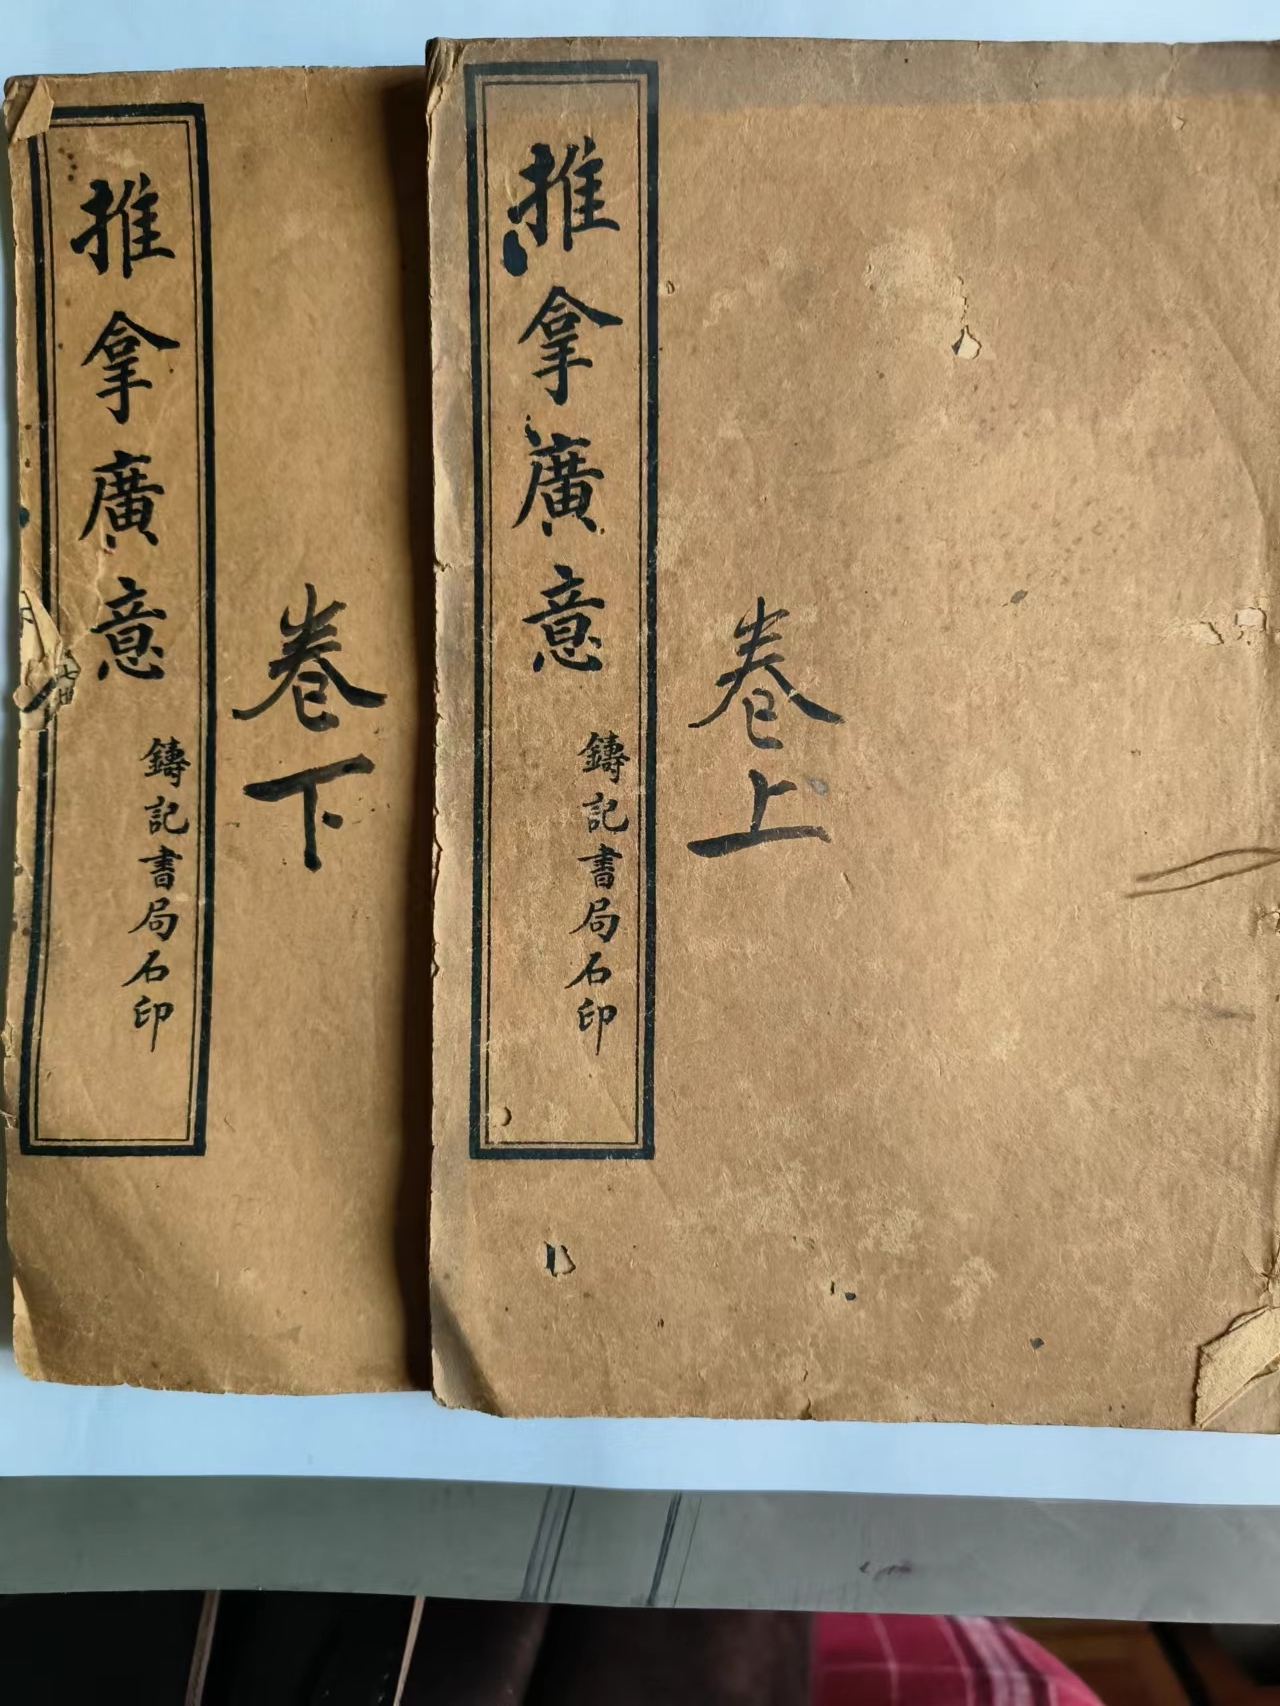 推拿廣意
鑄記書局石印
卷上
推拿廣意
鑄記書局石印
卷下